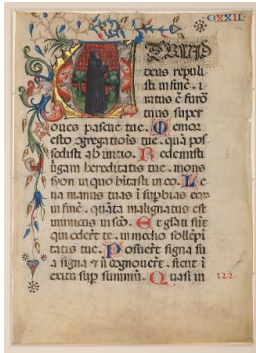 CXXII
deus repuli
sti in fine. i
ratus ē furor
tuus super
oues pascue tue. Memor
esto ɔgregatiōis tue. quā pos
sedisti ab initio. Redemisti
uirgam hereditatis tue. mons
syon in quo hitasti in eo. Le
ua manus tuas ī supbias eoɽ
in fine. quāta malignatus est
inimicus in scō. Et głati sūt
qui oderūt te. in medio sollēpni
tatis tue. Posuerūt signa su
a signa ⁊ nō cognouerūt. sicut ī
exitu sup summū. Quasi in
122